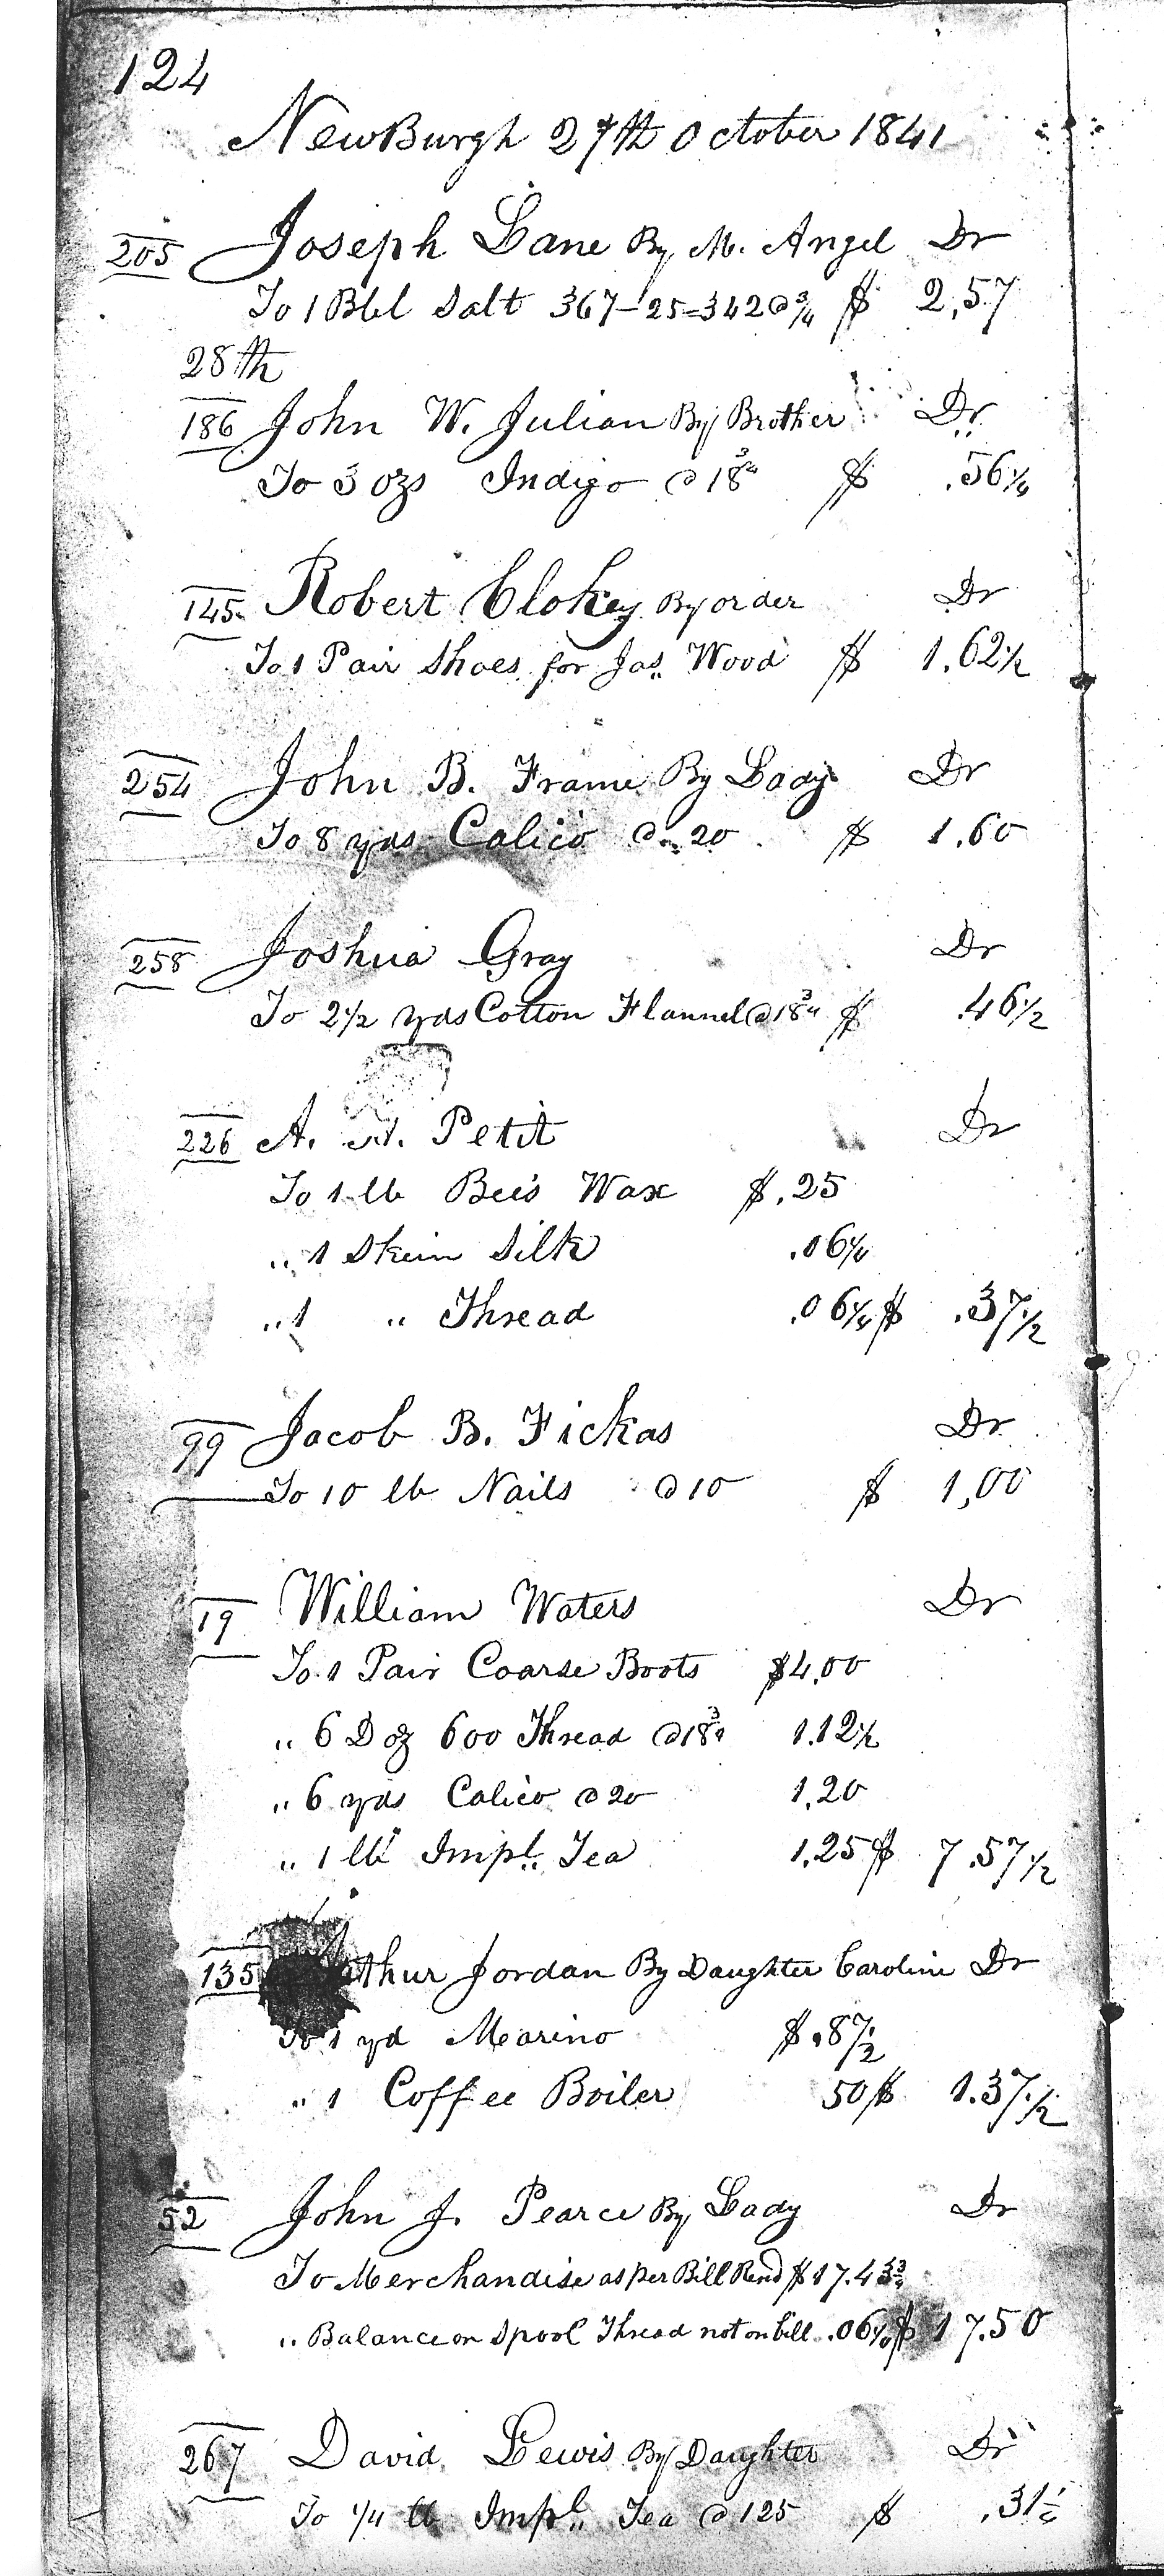 124
NewBurgh 27th October 1841
205 Joseph Lane By M. Angel Dr
To 1 Bbl Salt 367-25=342@¾ $ 2,57
28th
186 John W. Julian By Brother Dr
To 3 ozs Indigo @ 18¾ $ .56¼
145 Robert Clokey By order Dr
To 1 Pair Shoes for Jas. Wood $ 1.62½
254 John B. Frame By Lady Dr
To 8 yds Calico @ 20 $ 1.60
258 Joshua Gray Dr
To 2½ yds Cotton Flannel @ 18¾ $ .46½
226 A. Petit Dr
To 1 lb Bees Wax $ .25
" 1 Skein Silk .06¼
" 1 " Thread .06¼ $ .37½
99 Jacob B. Fickas Dr
To 10 lb Nails @ 10 $ 1,00
19 William Waters Dr
To 1 Pair Coarse Boots $4.00
" 6 Doz 600 Thread @18¾ 1.12½
" 6 yds Calico @ 20 1.20
" 1 lb Impl. Tea 1.25 $ 7.57½
135 thur Jordan By Daughter Caroline Dr
To 1 yd Marino $ .87½
" 1 Coffee Boiler 50 $ 1.37½
52 John J. Pearce By Lady Dr
To Merchandise as per Bill Rend $ 17.43¾
" Balance on Spool Thread not on bill .06¼ $ 17.50
267 David Lewis By Daughter Dr
To ¼ lb Impl. Tea @ 125 $ .31¼